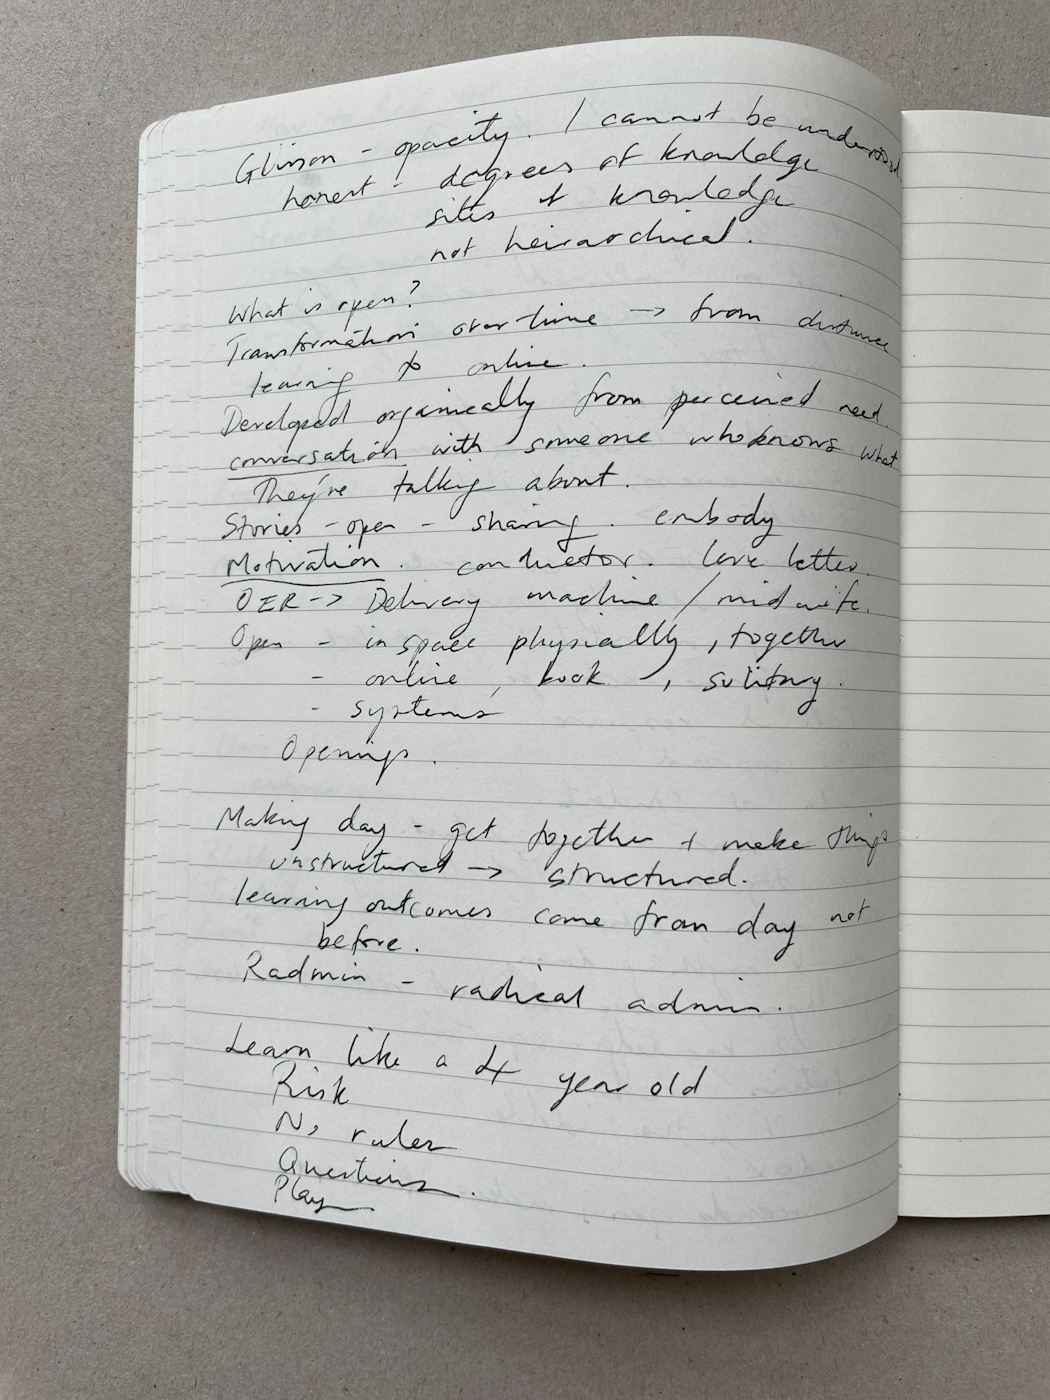 Glisson - opacity. I cannot be understood
honest - degrees of knowledge
sites of knowledge
not heirarchical.
What is open?
Transformation over time -> from distance
learning to online.
Developed organically from perceived need.
conversation with someone who knows what
They're talking about.
Stories - open - sharing. embody
Motivation. conductor. love letter.
OER -> Delivery machine / midwife.
Open - in space physically, together
- online, book, solitary.
- systems
Openings.
Making day - get together + make things
unstructured -> structured.
learning outcomes come from day not
before.
Radmin - radical admin.
Learn like a 4 year old
Risk
No rules
Questions.
Play